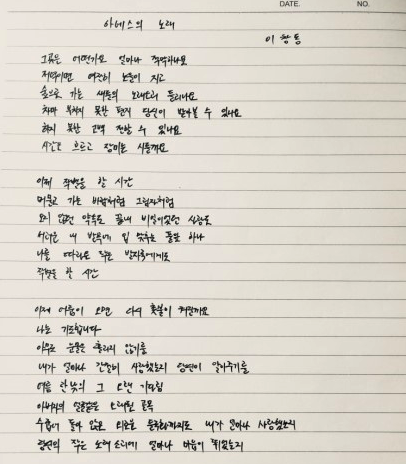 DATE. NO.
아네스의 노래
이창동
그곳은 어떤가요 얼마나 적막하나요
저녁이면 여전히 노을이 지고
숲으로 가는 새들의 노래소리 들리나요
차마 부치지 못한 편지 당신이 받아볼 수 있나요
하지 못한 고백 전할 수 있나요
시간은 흐르고 장미는 시들까요
이제 작별을 할 시간
머물고 가는 바람처럼 그림자처럼
오지 않던 약속도 끝내 비밀이었던 사랑도
서러운 내 발목에 입 맞추는 풀잎 하나
나를 따라온 작은 발자국에게도
작별을 할 시간
이제 어둠이 오면 다시 촛불이 켜질까요
나는 기도합니다
아무도 눈물은 흘리지 않기를
내가 얼마나 간절히 사랑했는지 당신이 알아주기를
여름 한낮의 그 오랜 기다림
아버지의 얼굴같은 오래된 골목
수줍어 돌아 앉은 외로운 들국화까지도 내가 얼마나 사랑했는지
당신의 작은 노래 소리에 얼마나 마음이 뛰었는지